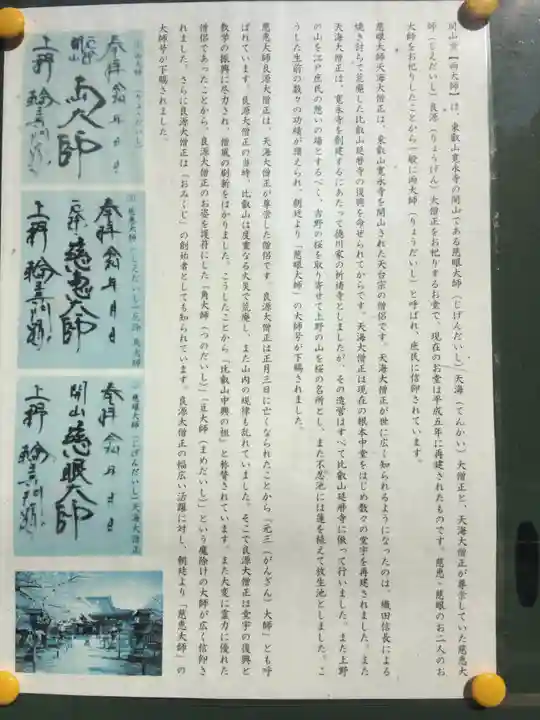 開山堂【両大師】は、東叡山寛永寺の開山である慈眼大師（じげんだいし）天海（てんかい）大僧正と、天海大僧正が尊崇していた慈恵大
師（じえだいし）良源（りょうげん）大僧正をお祀りするお堂で、現在のお堂は平成五年に再建されたものです。慈恵・慈眼のお二人のお
大師をお祀りしたことから一般に両大師（りょうだいし）と呼ばれ、庶民に信仰されています。
慈眼大師天海大僧正は、東叡山寛永寺を開山された天台宗の僧侶です。天海大僧正が世に広く知られるようになったのは、織田信長による
焼き討ちで荒廃した比叡山延暦寺の復興を命ぜられてからです。天海大僧正は現在の根本中堂をはじめ数々の堂宇を再建されました。また
天海大僧正は、寛永寺を創建するにあたって徳川家の祈祷寺としましたが、その造営はすべて比叡山延暦寺に倣って行いました。また上野
の山を江戸庶民の憩いの場とするべく、吉野の桜を取り寄せて上野の山を桜の名所とし、また不忍池には蓮を植えて放生池としました。こ
うした生前の数々の功績が讃えられ、朝廷より「慈眼大師」の大師号が下賜されました。
慈恵大師良源大僧正は、天海大僧正が尊崇した僧侶です。良源大僧正は正月三日に亡くなられたことから「元三（がんざん）大師」とも呼
ばれています。良源大僧正の当時、比叡山は度重なる火災で荒廃し、また山内の規律も乱れていました。そこで良源大僧正は堂宇の復興と
教学の振興に尽力され、僧風の刷新をはかりました。こうしたことから「比叡山中興の祖」と称賛されています。また大変に霊力に優れた
僧侶であったことから、良源大僧正のお姿を護符にした「角大師（つのだいし）」「豆大師（まめだいし）」という魔除けの大師が広く信仰さ
れました。さらに良源大僧正は「おみくじ」の創始者としても知られています。良源大僧正の幅広い活躍に対し、朝廷より「慈恵大師」の
大師号が下賜されました。
両大師（りょうだいし）
奉拝 令和 年 月 日
両大師
上野 輪王寺
慈恵大師（じえだいし）元三 角大師
奉拝 令和 年 月 日
慈恵大師
上野 輪王寺
慈眼大師（じげんだいし）天海大僧正
奉拝 令和 年 月 日
開山 慈眼大師
上野 輪王寺